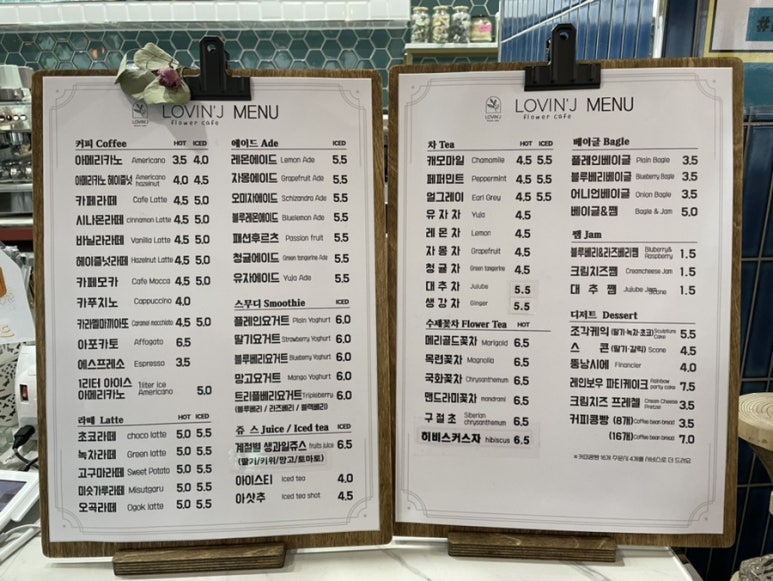 LOVIN'J MENU
flower cafe
커피 Coffee HOT ICED
아메리카노 Americano 3.5 4.0
아메리카노 헤이즐넛 Americano hazelnut 4.0 4.5
카페라떼 Cafe Latte 4.5 5.0
시나몬라떼 cinnamon Latte 4.5 5.0
바닐라라떼 Vanilla Latte 4.5 5.0
헤이즐넛라떼 Hazelnut Latte 4.5 5.0
카페모카 Cafe Mocca 4.5 5.0
카푸치노 Cappuccino 4.0
카라멜마끼아또 Caramel macchiato 4.5 5.0
아포카토 Affogato 6.5
에스프레소 Espresso 3.5
1리터 아이스 아메리카노 1liter ice Americano 5.0
라떼 Latte HOT ICED
초코라떼 choco latte 5.0 5.5
녹차라떼 Green latte 5.0 5.5
고구마라떼 Sweet Potato 5.0 5.5
미숫가루라떼 Misutgaru 5.0 5.5
오곡라떼 Ogok latte 5.0 5.5
에이드 Ade ICED
레몬에이드 Lemon Ade 5.5
자몽에이드 Grapefruit Ade 5.5
오미자에이드 Schizandra Ade 5.5
블루레몬에이드 Bluelemon Ade 5.5
패션후르츠 Passion fruit 5.5
청귤에이드 Green tangerine Ade 5.5
유자에이드 Yuja Ade 5.5
스무디 Smoothie ICED
플레인요거트 Plain Yoghurt 6.0
딸기요거트 Strawberry Yoghurt 6.0
블루베리요거트 Blueberry Yoghurt 6.0
망고요거트 Mango Yoghurt 6.0
트리플베리요거트 Tripleberry 6.0
(블루베리 / 라즈베리 / 블랙베리)
쥬 스 Juice / Iced tea ICED
계절별 생과일쥬스 fruits Juice 6.5
(딸기/키위/망고/토마토)
아이스티 Iced tea 4.0
아샷추 Iced tea shot 4.5
LOVIN'J MENU
flower cafe
차 Tea HOT ICED
캐모마일 Chamomile 4.5 5.5
페퍼민트 Peppermint 4.5 5.5
얼그레이 Earl Grey 4.5 5.5
유 자 차 Yuja 4.5
레 몬 차 Lemon 4.5
자 몽 차 Grapefruit 4.5
청 귤 차 Green tangerine 4.5
대 추 차 Jujube 5.5
생 강 차 Ginger 5.5
수제꽃차 Flower Tea HOT
메리골드꽃차 Marigold 6.5
목련꽃차 Magnolia 6.5
국화꽃차 Chrysanthemum 6.5
맨드라미꽃차 mandrami 6.5
구 절 초 Siberian chrysanthemum 6.5
히비스커스차 hibiscus 6.5
베이글 Bagle
플레인베이글 Plain Bagle 3.5
블루베리베이글 Blueberry Bagle 3.5
어니언베이글 Onion Bagle 3.5
베이글&쨈 Bagle & Jam 5.0
쨈 Jam
블루베리&라즈베리쨈 Bluberry& Raspberry 1.5
크림치즈쨈 Creamcheese Jam 1.5
대 추 쨈 Jujube Jam 1.5
디저트 Dessert
조각케익 (딸기·녹차·초코) Sculpture Cake 5.5
스 콘 (딸기·갈릭) Scone 4.5
휘낭시에 Financier 4.0
레인보우 파티케이크 Rainbow party cake 7.5
크림치즈 프레첼 Cream Cheese Pretzel 3.5
커피콩빵 (8개) Coffee bean bread 3.5
(16개) Coffee bean bread 7.0
※ 커피콩빵 16개 주문시 4개를 서비스로 더 드려요